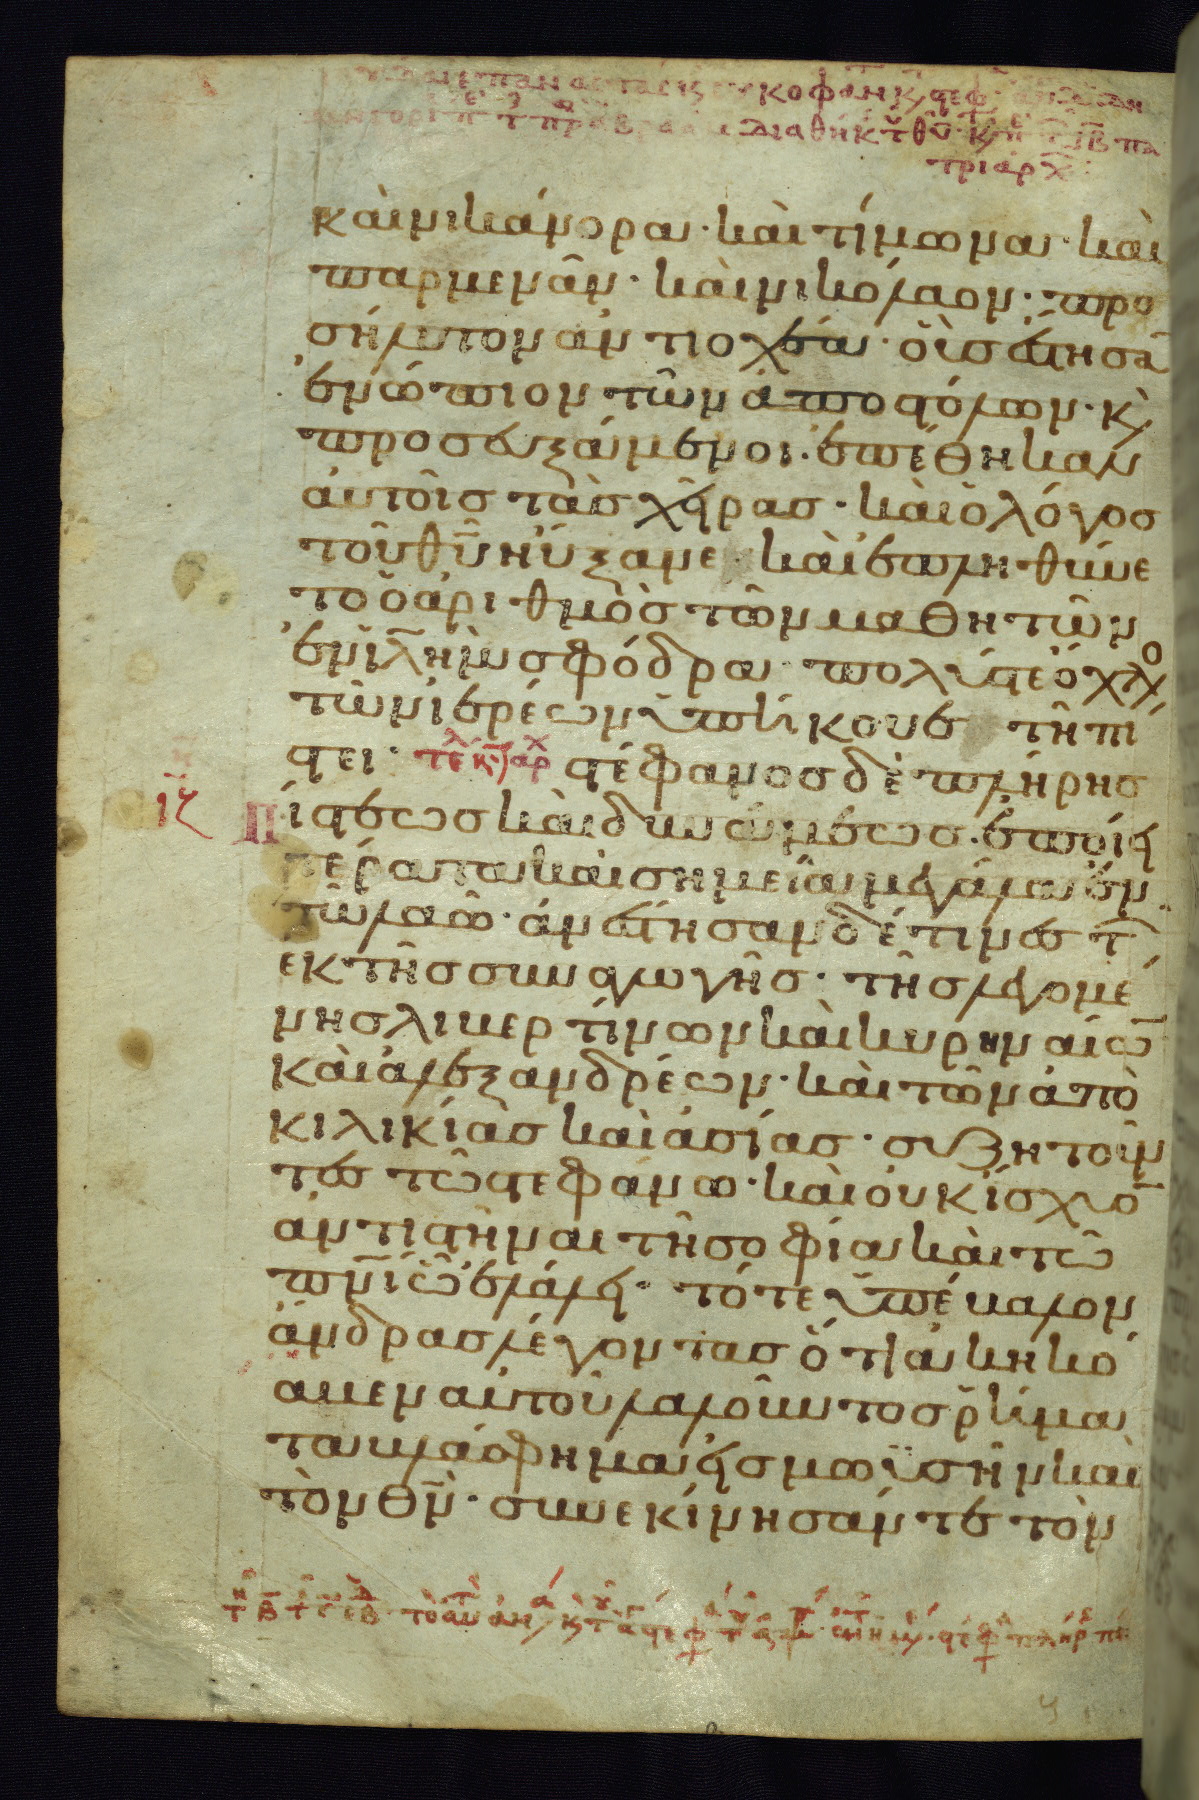 κοφαν κ στεφ
διαθήκ τ θυ κ ιβ πα
τριάρχ
καὶ νικάνορα · καὶ τίμωνα · καὶ
παρμενᾶν · καὶ νικόλαον · προ
σήλυτον ἀντιοχέα · οὓς ἔστησα̅
ἐνώπιον τῶν ἀποστόλων · κ
προσευξάμενοι · ἐπέθηκαν
αὐτοῖς τὰς χεῖρας · καὶ ὁ λόγος
τοῦ θυ̅ ηὔξανε καὶ ἐπληθύνε
το ὁ ἀριθμὸς τῶν μαθητῶν
ἐν ιλη̅μ σφόδρα πολύς τε ὄχλο
τῶν ἱερέων ὑπήκουε τῇ πί
στει · τελ κ αρχ στέφανος δὲ πλήρης
ιζ πίστεως καὶ δυνάμεως · ἐποίει
τέρατα καὶ σημεῖα μεγάλα ἐν
τῷ λαῷ · ἀνέστησαν δέ τινες τ
ἐκ τῆς συναγωγῆς · τῆς λεγομέ
νης λιβερτίνων καὶ κυρηναίω̅
καὶ ἀλεξανδρέων · καὶ τῶν ἀπὸ
κιλικίας καὶ ἀσίας · συζητοῦν
τες τῷ στεφάνῳ · καὶ οὐκ ἴσχυο̅
ἀντιστῆναι τῇ σοφίᾳ καὶ τῷ
πνι̅ ᾧ ἐλάλει · τότε ὑπέβαλον
ἄνδρας λέγοντας ὅτι ἀκηκό
αμεν αὐτοῦ λαλοῦντος ῥήμα
τα βλάσφημα εἰς μωϋσῆν καὶ
τὸν θν̅ · συνεκίνησάν τε τὸν